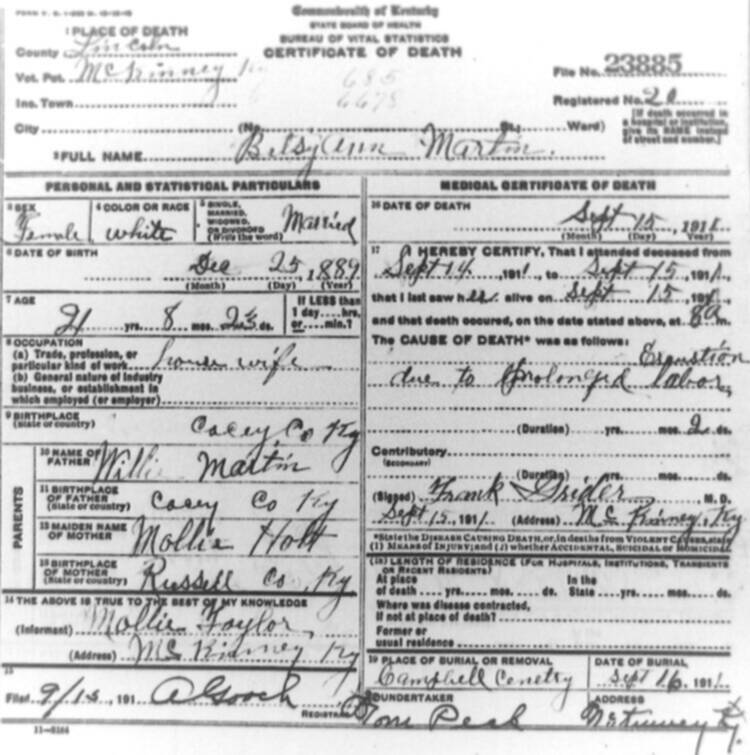 Commonwealth of Kentucky
STATE BOARD OF HEALTH
BUREAU OF VITAL STATISTICS
CERTIFICATE OF DEATH
1 PLACE OF DEATH
County Lincoln
Vot. Pct. McKinney Ky
Inc. Town
City (No. St.; Ward)
685
6678
File No. 23885
Registered No. 20
[If death occurred in a hospital or institution, give its NAME instead of street and number.]
2 FULL NAME Betsy Ann Martin.
PERSONAL AND STATISTICAL PARTICULARS
3 SEX Female
4 COLOR OR RACE white
5 SINGLE, MARRIED, WIDOWED, OR DIVORCED (Write the word) Married
6 DATE OF BIRTH
Dec 25, 1889
(Month) (Day) (Year)
7 AGE
21 yrs. 8 mos. ds.
If LESS than 1 day....hrs. or....min.?
8 OCCUPATION
(a) Trade, profession, or particular kind of work house wife
(b) General nature of industry business, or establishment in which employed (or employer)
9 BIRTHPLACE
(State or country) Cacey Co Ky
PARENTS
10 NAME OF FATHER Willie Martin
11 BIRTHPLACE OF FATHER (State or country) Cacey Co Ky
12 MAIDEN NAME OF MOTHER Mollie Holt
13 BIRTHPLACE OF MOTHER (State or country) Russell Co, Ky
14 THE ABOVE IS TRUE TO THE BEST OF MY KNOWLEDGE
(Informant) Mollie Taylor
(Address) McKinney Ky
15
Filed 9/15, 191 A Gooch
REGISTRAR
11-5184
MEDICAL CERTIFICATE OF DEATH
16 DATE OF DEATH
Sept 15, 1911
(Month) (Day) (Year)
17 I HEREBY CERTIFY, That I attended deceased from
Sept 14, 1911, to Sept 15, 1911,
that I last saw her alive on Sept 15, 1911,
and that death occured, on the date stated above, at 8 a m.
The CAUSE OF DEATH* was as follows:
Exaustion
due to Prolonged labor
(Duration) yrs. mos. 2 ds.
Contributory
(SECONDARY)
(Duration) yrs. mos. ds.
(Signed) Frank Grider M. D.
Sept 15, 1911 (Address) McKinney, Ky
*State the DISEASE CAUSING DEATH, or, in deaths from VIOLENT CAUSES, state
(1) MEANS OF INJURY; and (2) whether ACCIDENTAL, SUICIDAL or HOMICIDAL
(18) LENGTH OF RESIDENCE (FOR HOSPITALS, INSTITUTIONS, TRANSIENTS OR RECENT RESIDENTS)
At place of death yrs. mos. ds. In the State yrs. mos. ds.
Where was disease contracted,
if not at place of death?
Former or
usual residence
19 PLACE OF BURIAL OR REMOVAL
Campbell Cemetry
DATE OF BURIAL
Sept 16, 1911
20 UNDERTAKER
Tom Peak
ADDRESS